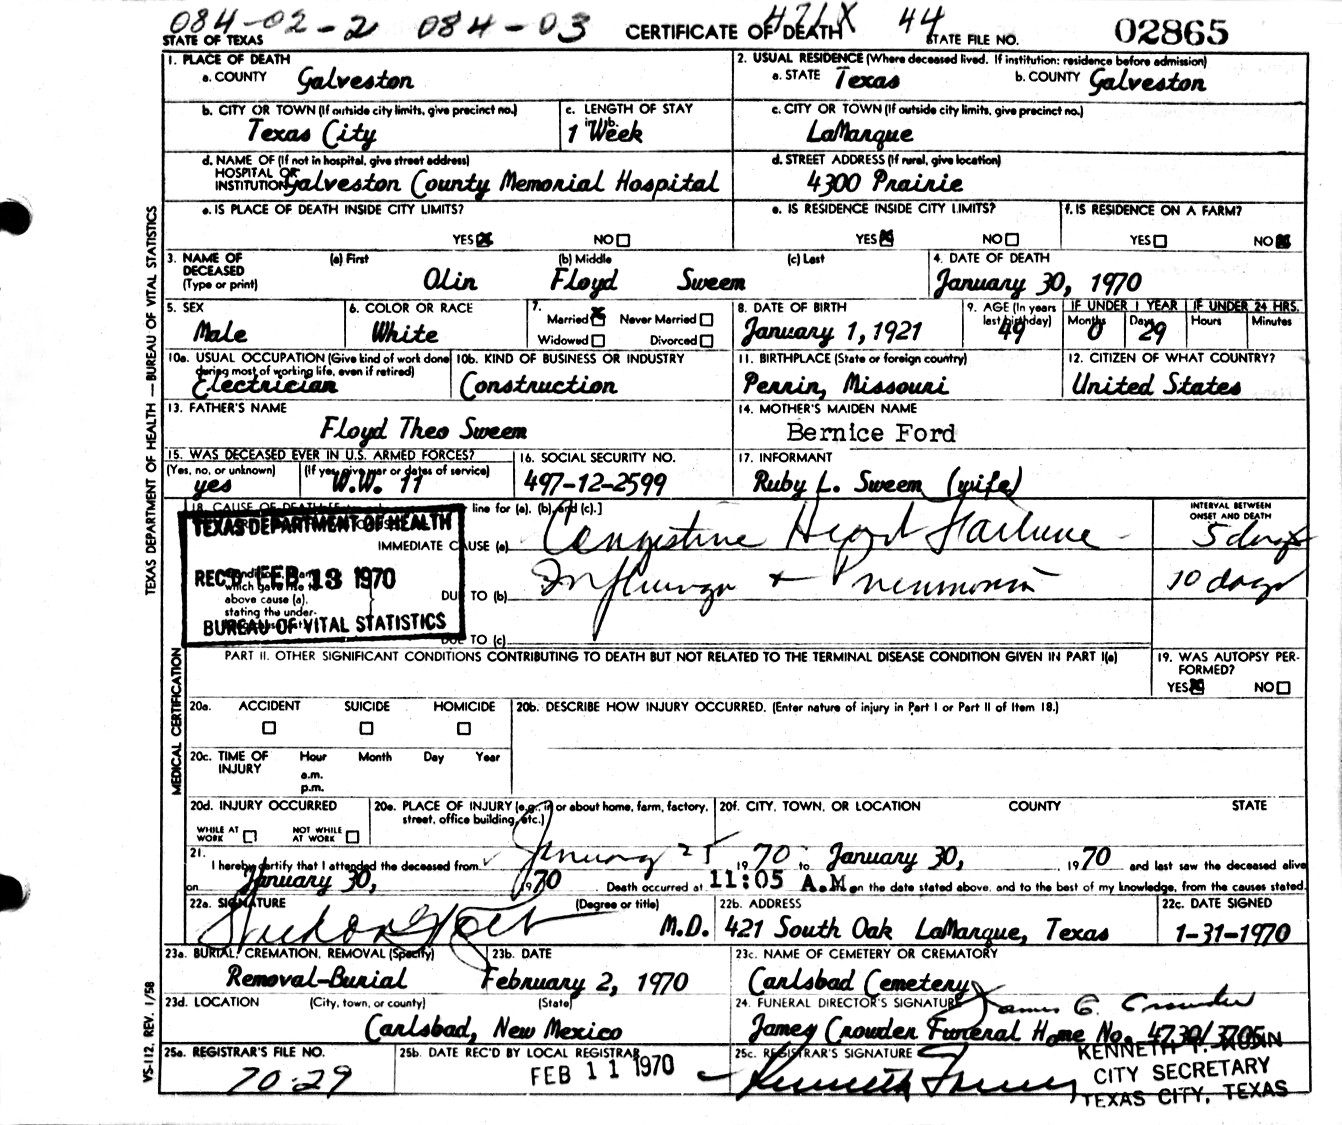 084-02-2 084-03 471X 44
STATE OF TEXAS CERTIFICATE OF DEATH STATE FILE NO. 02865
1. PLACE OF DEATH 2. USUAL RESIDENCE (Where deceased lived. If institution: residence before admission)
a. COUNTY Galveston a. STATE Texas b. COUNTY Galveston
b. CITY OR TOWN (If outside city limits, give precinct no.) c. LENGTH OF STAY c. CITY OR TOWN (If outside city limits, give precinct no.)
Texas City 1 Week LaMarque
d. NAME OF (If not in hospital, give street address) d. STREET ADDRESS (If rural, give location)
HOSPITAL OR
INSTITUTION Galveston County Memorial Hospital 4300 Prairie
e. IS PLACE OF DEATH INSIDE CITY LIMITS? e. IS RESIDENCE INSIDE CITY LIMITS? f. IS RESIDENCE ON A FARM?
YES NO YES NO YES NO
3. NAME OF (a) First (b) Middle (c) Last 4. DATE OF DEATH
DECEASED
(Type or print) Olin Floyd Sweem January 30, 1970
5. SEX 6. COLOR OR RACE 7. 8. DATE OF BIRTH 9. AGE (In years IF UNDER 1 YEAR IF UNDER 24 HRS.
Married Never Married last birthday) Months Days Hours Minutes
Male White January 1, 1921 49 0 29
Widowed Divorced
10a. USUAL OCCUPATION (Give kind of work done 10b. KIND OF BUSINESS OR INDUSTRY 11. BIRTHPLACE (State or foreign country) 12. CITIZEN OF WHAT COUNTRY?
during most of working life, even if retired)
Electrician Construction Perrin, Missouri United States
13. FATHER'S NAME 14. MOTHER'S MAIDEN NAME
Floyd Theo Sweem Bernice Ford
15. WAS DECEASED EVER IN U.S. ARMED FORCES? 16. SOCIAL SECURITY NO. 17. INFORMANT
(Yes, no, or unknown) (If yes, give war or dates of service)
yes W.W. 11 497-12-2599 Ruby L. Sweem (wife)
18. CAUSE OF DEATH line for (a), (b), and (c).] INTERVAL BETWEEN
ONSET AND DEATH
TEXAS DEPARTMENT OF HEALTH
IMMEDIATE CAUSE (a) Congestive Heart Failure 5 days
REC'D FEB 13 1970
which gave rise to
above cause (a), DUE TO (b) Influenza + Pneumonia 10 days
stating the under-
BUREAU OF VITAL STATISTICS
DUE TO (c)
PART II. OTHER SIGNIFICANT CONDITIONS CONTRIBUTING TO DEATH BUT NOT RELATED TO THE TERMINAL DISEASE CONDITION GIVEN IN PART I(a) 19. WAS AUTOPSY PER-
FORMED?
YES NO
20a. ACCIDENT SUICIDE HOMICIDE 20b. DESCRIBE HOW INJURY OCCURRED. (Enter nature of injury in Part I or Part II of Item 18.)
20c. TIME OF Hour Month Day Year
INJURY a.m.
p.m.
20d. INJURY OCCURRED 20e. PLACE OF INJURY (e.g., in or about home, farm, factory, 20f. CITY, TOWN, OR LOCATION COUNTY STATE
street, office building, etc.)
WHILE AT WORK NOT WHILE AT WORK
21.
I hereby certify that I attended the deceased from January 25 1970 to January 30, 1970 and last saw the deceased alive
on January 30, 1970 Death occurred at 11:05 A.M. on the date stated above, and to the best of my knowledge, from the causes stated.
22a. SIGNATURE (Degree or title) 22b. ADDRESS 22c. DATE SIGNED
M.D. 421 South Oak LaMarque, Texas 1-31-1970
23a. BURIAL, CREMATION, REMOVAL (Specify) 23b. DATE 23c. NAME OF CEMETERY OR CREMATORY
Removal-Burial February 2, 1970 Carlsbad Cemetery
23d. LOCATION (City, town, or county) (State) 24. FUNERAL DIRECTOR'S SIGNATURE James C. Crowder
Carlsbad, New Mexico James Crowder Funeral Home No. 4730/3705
25a. REGISTRAR'S FILE NO. 25b. DATE REC'D BY LOCAL REGISTRAR 25c. REGISTRAR'S SIGNATURE
70-29 FEB 11 1970
KENNETH T.
CITY SECRETARY
TEXAS CITY, TEXAS
TEXAS DEPARTMENT OF HEALTH — BUREAU OF VITAL STATISTICS
MEDICAL CERTIFICATION
VS-112, REV. 1/58